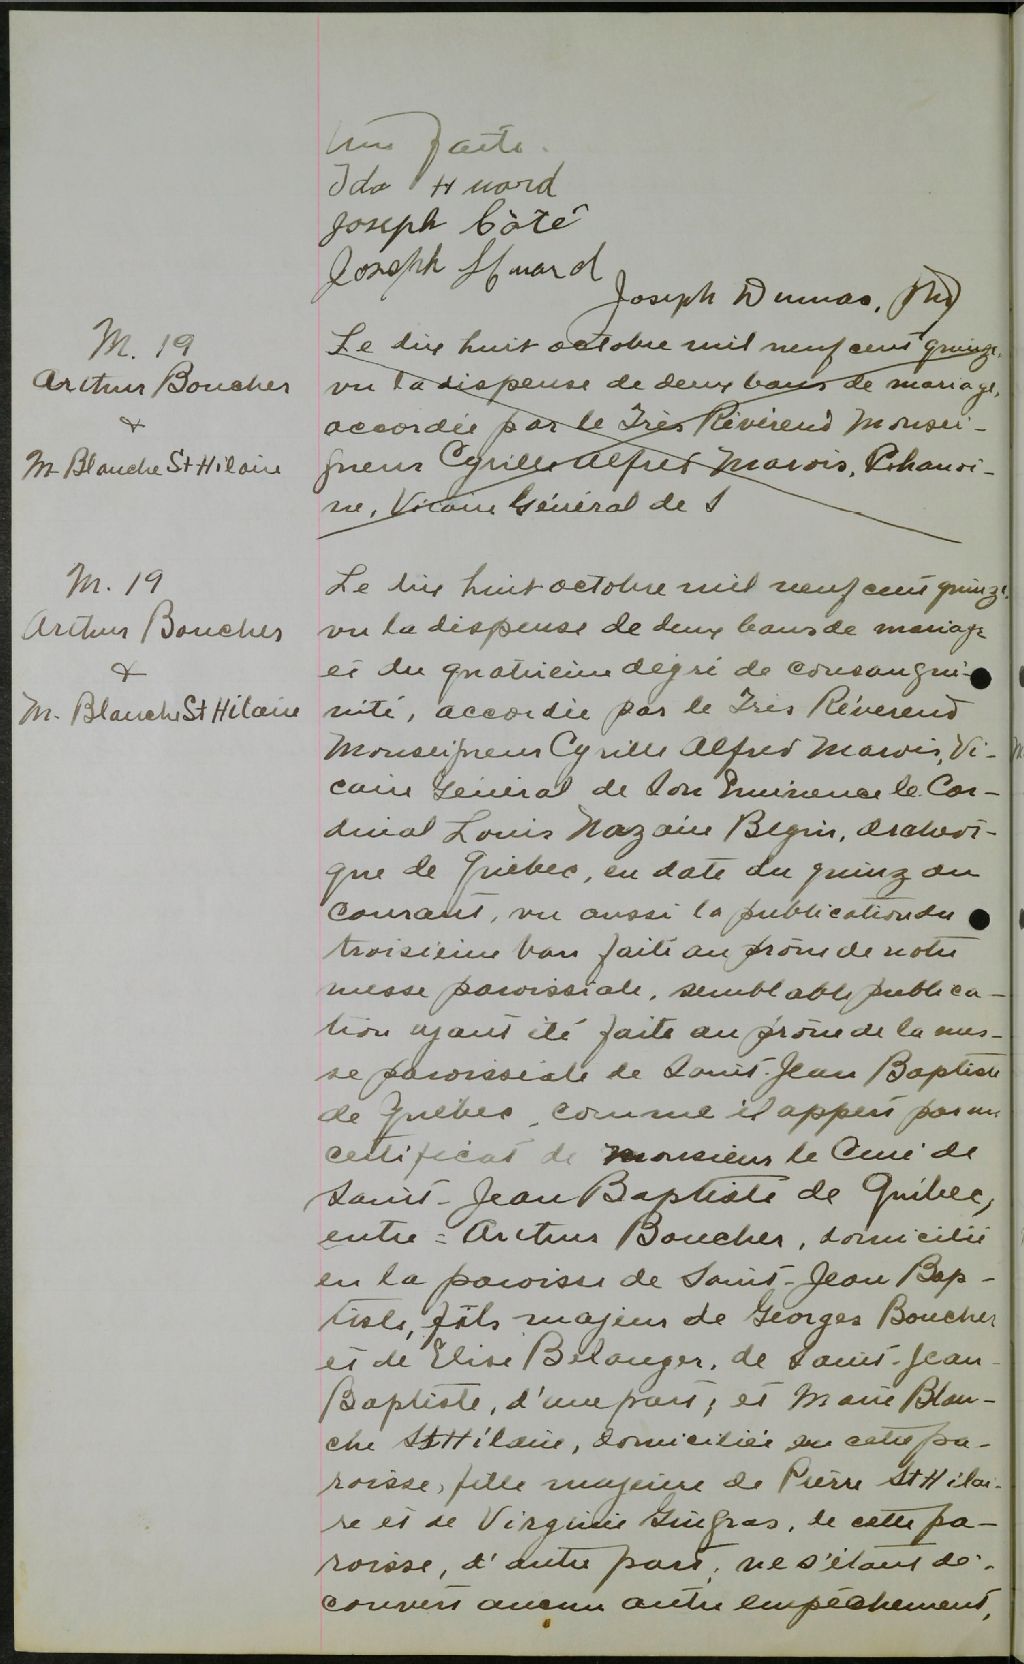 faite.
Ida Huard
Joseph Côté
Joseph Huard
Joseph Dumas, Ptre
M. 19
Arthur Boucher
&
M. Blanche St Hilaire
Le dix huit octobre mil neuf cent quinze,
vu la dispense de deux bans de mariage,
accordée par le Très Révérend Monsei-
gneur Cyrille Alfred Marois, P. chanoi-
ne, Vicaire Général de S
M. 19
Arthur Boucher
&
M. Blanche St Hilaire
Le dix huit octobre mil neuf cent quinze,
vu la dispense de deux bans de mariage
et du quatrième degré de consangui-
nité, accordée par le Très Révérend
Monseigneur Cyrille Alfred Marois, Vi-
caire Général de Son Eminence le Car-
dinal Louis Nazaire Bégin, archevê-
que de Québec, en date du quinze du
courant, vu aussi la publication du
troisième ban faite au prône de notre
messe paroissiale, semblable publica-
tion ayant été faite au prône de la mes-
se paroissiale de Saint-Jean Baptiste
de Québec, comme il appert par un
certificat de Monsieur le Curé de
Saint-Jean Baptiste de Québec,
entre = Arthur Boucher, domicilié
en la paroisse de Saint-Jean Bap-
tiste, fils majeur de Georges Boucher
et de Elise Bélanger, de Saint-Jean-
Baptiste, d'une part; et Marie Blan-
che St Hilaire, domiciliée en cette pa-
roisse, fille majeure de Pierre St Hilai-
re et de Virginie Gingras, de cette pa-
roisse, d'autre part; ne s'étant dé-
couvert aucun autre empêchement,